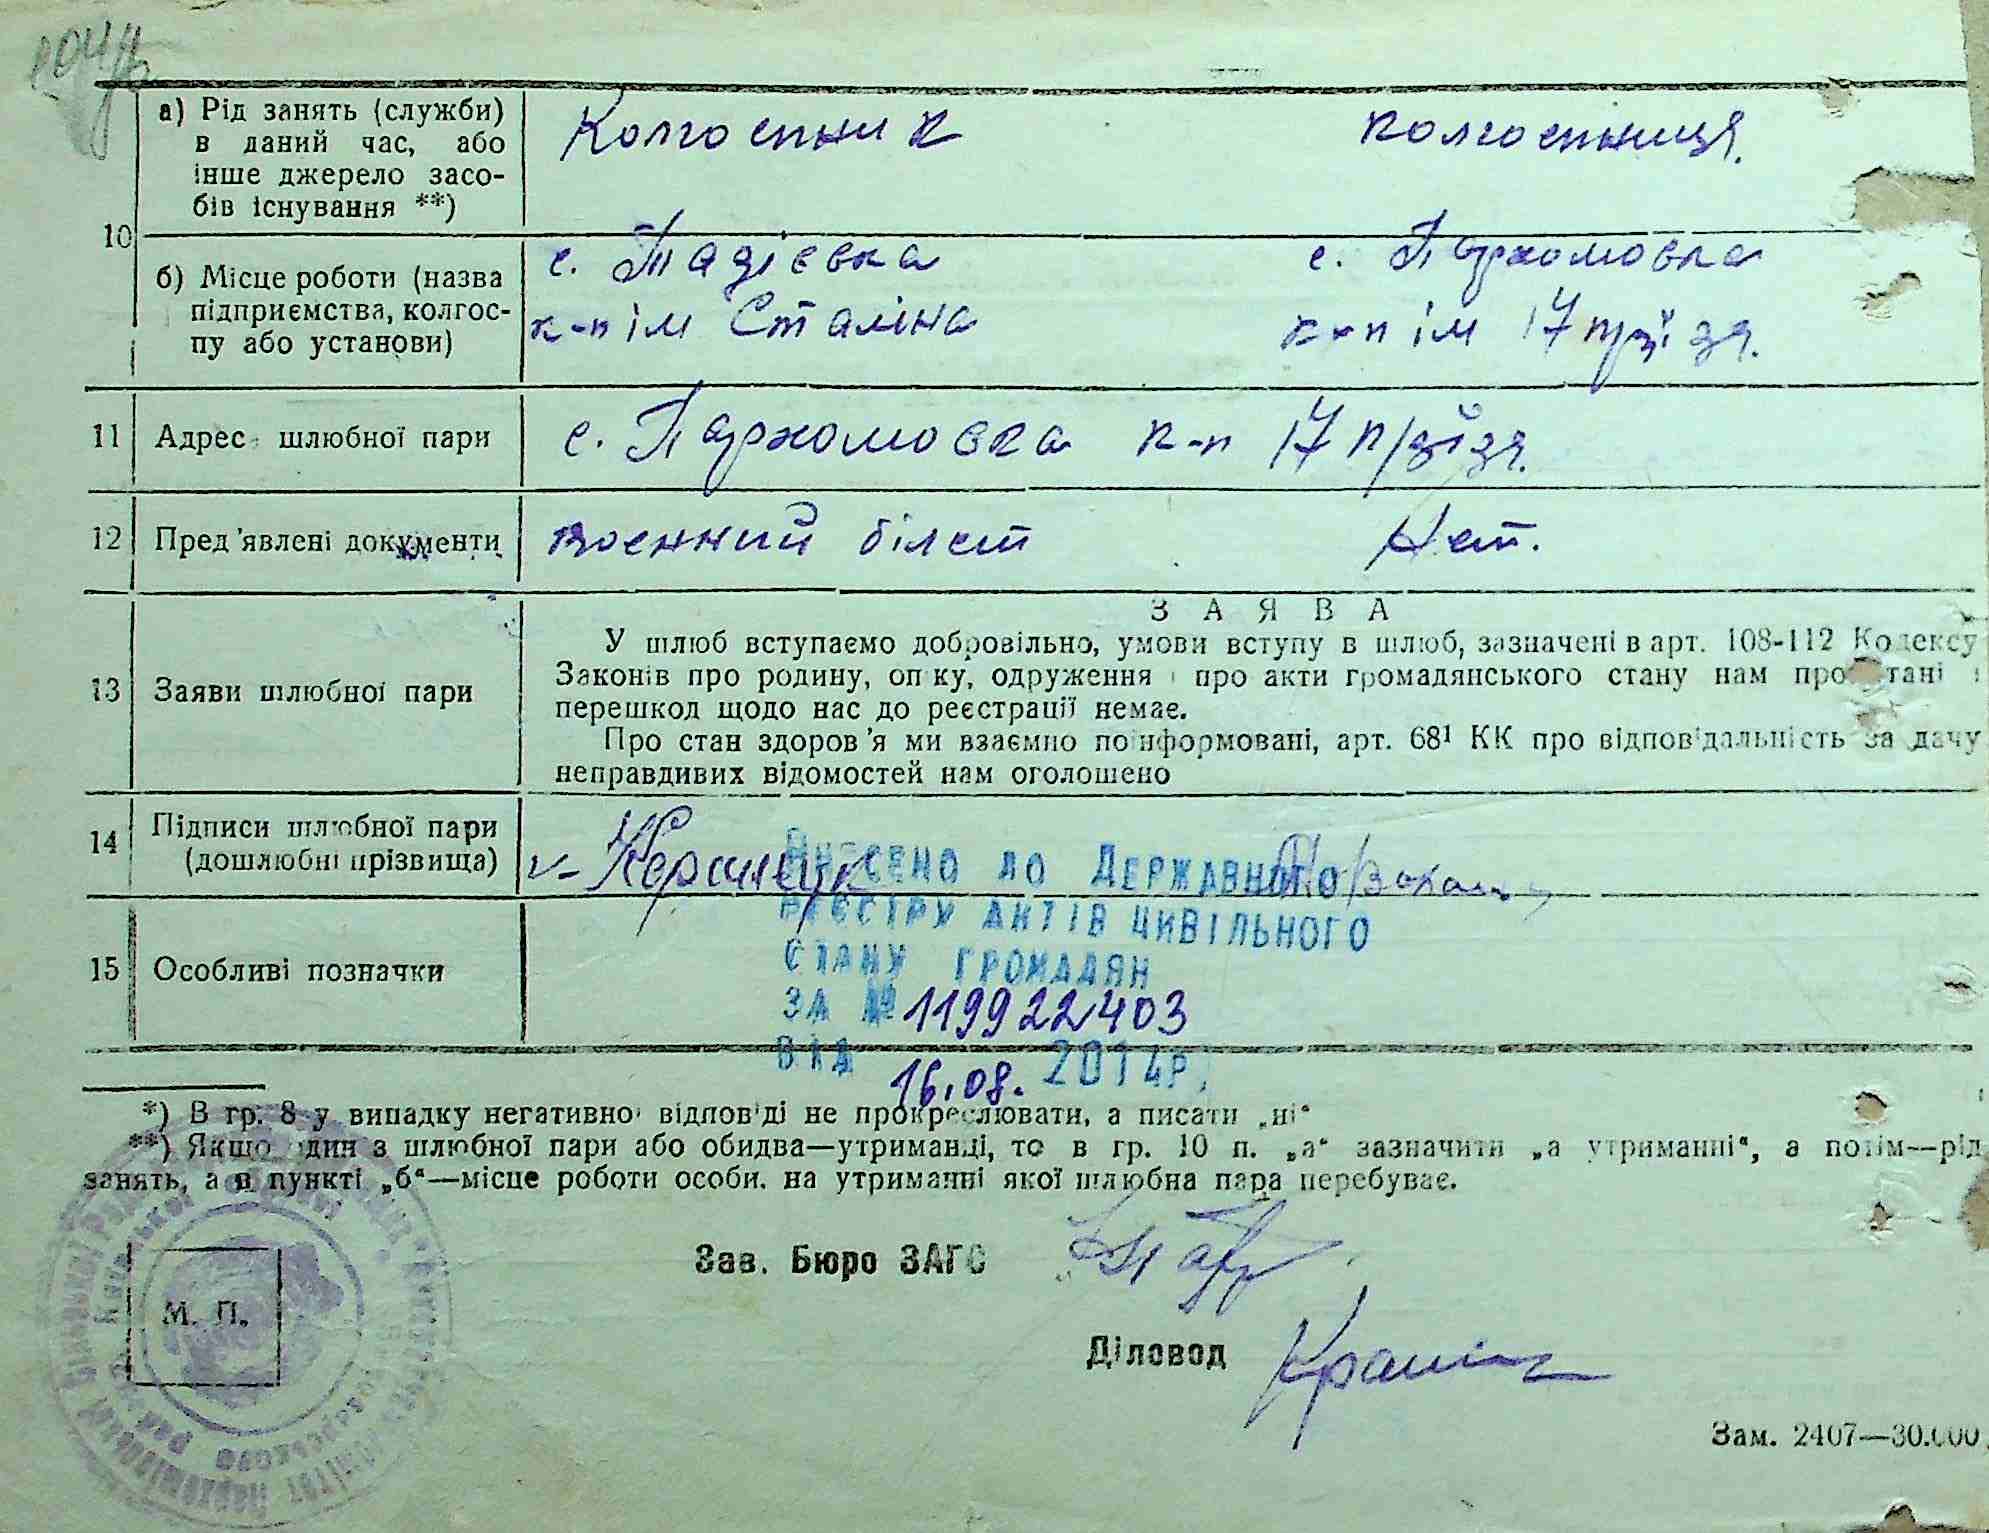 а) Рід занять (служби)
в даний час, або
інше джерело засо-
бів існування **)
Колгоспник
колгоспниця.
10
б) Місце роботи (назва
підприємства, колгос-
пу або установи)
с. Тадієвка
с. Пархомовка
к-п ім Сталіна
к-п ім 17 п/зїзд.
11 Адрес шлюбної пари
с. Пархомовка к-п 17 п/зїзд.
12 Пред'явлені документи
военний білет
Нет.
13 Заяви шлюбної пари
ЗАЯВА
У шлюб вступаємо добровільно, умови вступу в шлюб, зазначені в арт. 108-112 Кодексу
Законів про родину, оп ку, одруження і про акти громадянського стану нам про тані і
перешкод щодо нас до реєстрації немає.
Про стан здоров'я ми взаємно поінформовані, арт. 68¹ КК про відповідальність за дачу
неправдивих відомостей нам оголошено
14 Підписи шлюбної пари
(дошлюбні прізвища)
Внесено до Державного
реєстру актів цивільного
стану громадян
за № 119922403
від 16.08. 2014р.
15 Особливі позначки
*) В гр. 8 у випадку негативної відповіді не прокреслювати, а писати „ні“
**) Якщо один з шлюбної пари або обидва—утриманці, то в гр. 10 п. „а“ зазначити „а утриманні“, а потім—рід
занять, а в пункті „б“—місце роботи особи, на утриманні якої шлюбна пара перебуває.
Зав. Бюро ЗАГС
М. П.
Діловод
Зам. 2407—30.000